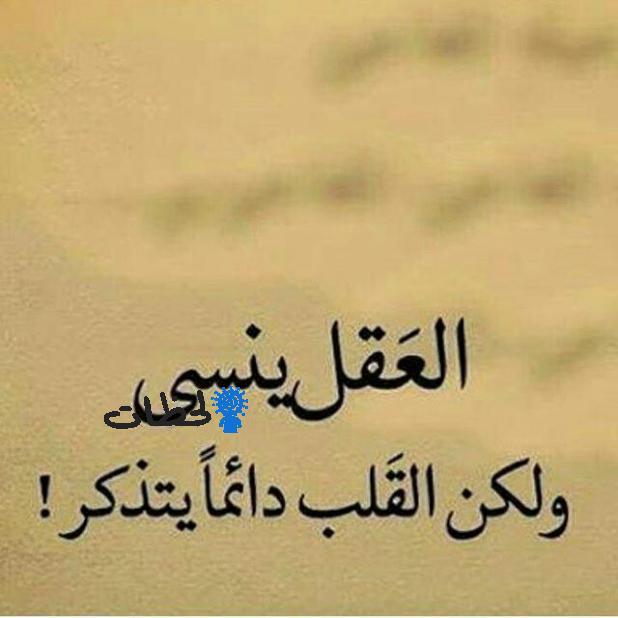 العَقل ينسى
لحظات
ولكن القَلب دائماً يتذكر !